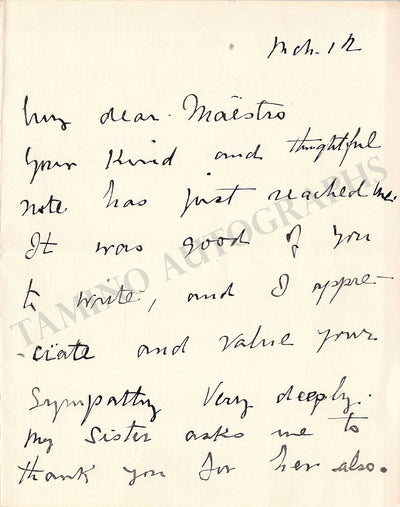 Mch. 12
My dear Maëstro
Your kind and thoughtful
note has just reached me.
It was good of you
to write, and I appre-
-ciate and value your
sympathy very deeply.
My sister asks me to
thank you for her also.
TAMINO AUTOGRAPHS